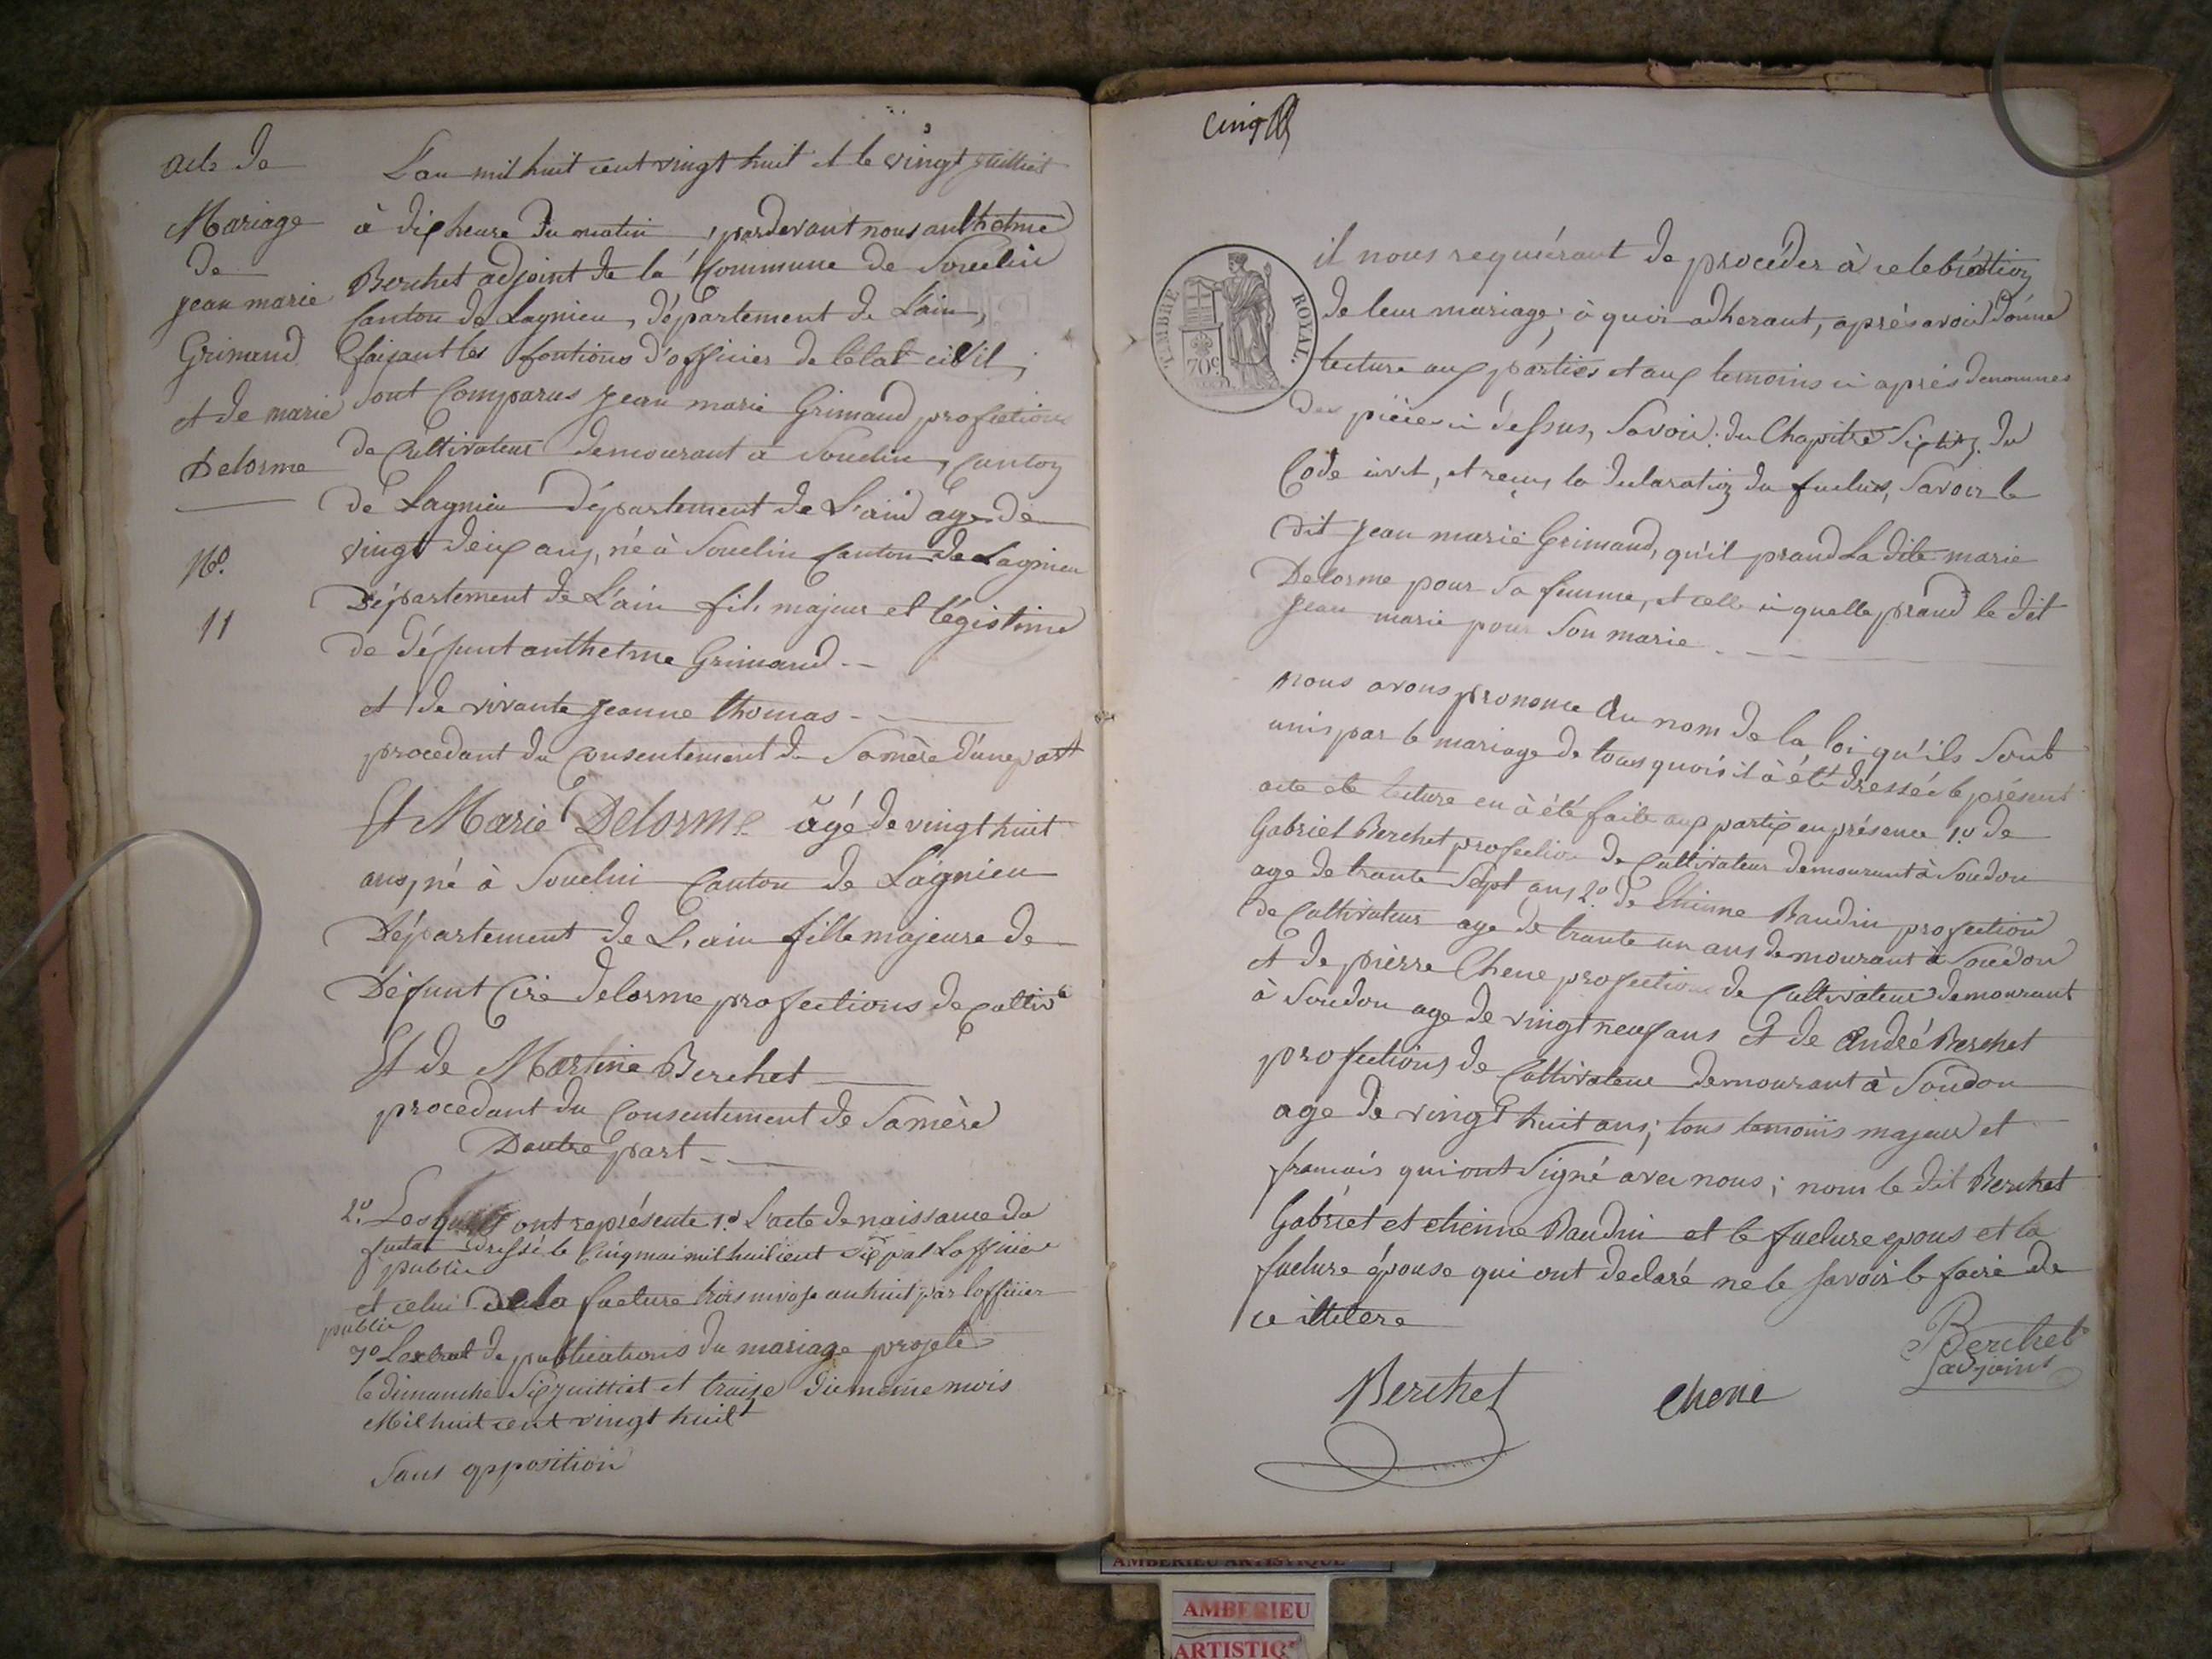 acte de
Mariage
de
jean marie
Grimand
et de marie
Delorme
No.
11
L'an mil huit cent vingt huit et le vingt juilliet
à dix heure du matin, pardevant nous anthelme
Berchet adjoint de la Commune de Souclin
Canton de Lagnieu, département de L'ain,
faisant les fontions d'officier de l'etat civil,
sont Comparus jean marie Grimand profections
de Cultivateur demourant à Souclin, Canton
de Lagnieu département de L'ain age de
vingt deux ans, né à Souclin Canton de Lagnieu
Département de L'ain fils majeur et légistime
de défunt anthelme Grimand
et de vivante jeanne thomas
procedant du Consentement de Sa mère d'une part
Et Marie Delorme âgé de vingt huit
ans, né à Souclin Canton de Lagnieu
Département de L'ain fille majeure de
Défunt Cire Delorme profections de Cultivr
Et de Martine Berchet
procedant du Consentement de Sa mère
Dautre part
2o. Lesquels ont représente 1o. L'acte de naissance du
futur dressé le Cinq mai mil huit cent six par L'officier
public
et celui de la fucture trois nivose an huit par l'officier
public
3o L'extrat de publications du mariage projeté
le dimanche Six juilliet et traize du meme mois
Mil huit cent vingt huit
Sans opposition
cinq
TIMBRE ROYAL.
70c
il nous requérant de procéder à celebration
de leur mariage; à quoi adherant, après avoir donné
lecture aux parties et aux temoins ci après denommes
des pièces ci dessus, Savoir: du Chapitre Six du
Code civil, et reçus la declaration du fucturs, Savoir le
dit jean marie Grimand, qu'il prand La dite marie
Delorme pour Sa femme, et celle ci quelle prand le dit
jean marie pour Son marie
nous avons prononce au nom de la loi qu'ils Sont
unis par le mariage de tous quois il à été dressé le présent
acte et lecture en à été faite aux partis en présence 1o. de
Gabriel Berchet profection de Cultivateur demourant à Soudon
age de trante Sept ans, 2o. de Etienne Baudin profection
de Cultivateur age de trante un ans demourant à Soudon
et de pierre Chene profection de Cultivateur demourant
à Soudon age de vingt neuf ans et de André Berchet
profections de Cultivateur demourant à Soudon
age de vingt huit ans; tous temoins majeur et
francais qui ont Signé avec nous; nom le dit Berchet
Gabriel et etienne Baudin et le fucture epous et la
fucture épouse qui ont declaré ne le savoir le faire de
ce
Berchet
adjoint
Berchet
chene
AMBERIEU ARTISTIQUE
AMBERIEU
ARTISTIQ